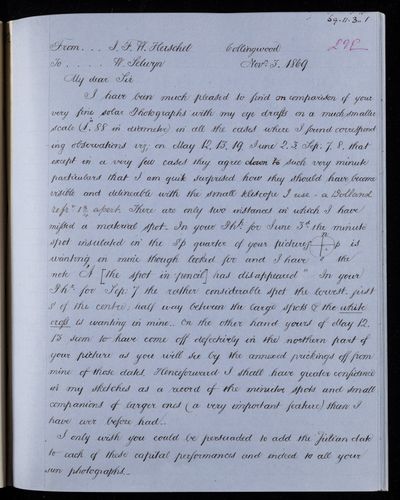 59-11-3-1
From . . . J. F. W. Herschel Collingwood
To . . . . . W. Selwyn Novr. 3. 1869
My dear Sir
I have been much pleased to find on comparison of your
very fine solar Photographs with my eye drafts on a much smaller
scale (1.88 in diameter) in all the cases where I found correspond
ing observations viz: on May 12, 13, 19, June 2, 3, Sep. 7, 8, that
except in a very few cases they agree down to such very minute
particulars that I am quite surprised how they should have become
visible and delineable with the small telescope I use - a Dolland
There are only two instances in which I have
missed a material spot. In your Pht. for June 3d the minute
spot insulated in the Sp quarter of your picture p is
wanting in mine though looked for and I have the
note "A [the spot in pencil] has disappeared" In your
Pht. for Sep. 7 the rather considerable spot the lowest, just
s of the centre, half way between the large spots & the white
cross is wanting in mine.. On the other hand yours of May 12,
13 seem to have come off defectively in the northern part of
your picture as you will see by the annexed prickings off from
mine of those dates. Henceforward I shall have greater confidence
in my sketches as a record of the minuter spots and small
companions of larger ones (a very important feature) than I
have ever before had..
I only wish you could be persuaded to add the Julian date
to each of these capital performances and indeed to all your
sun photographs..